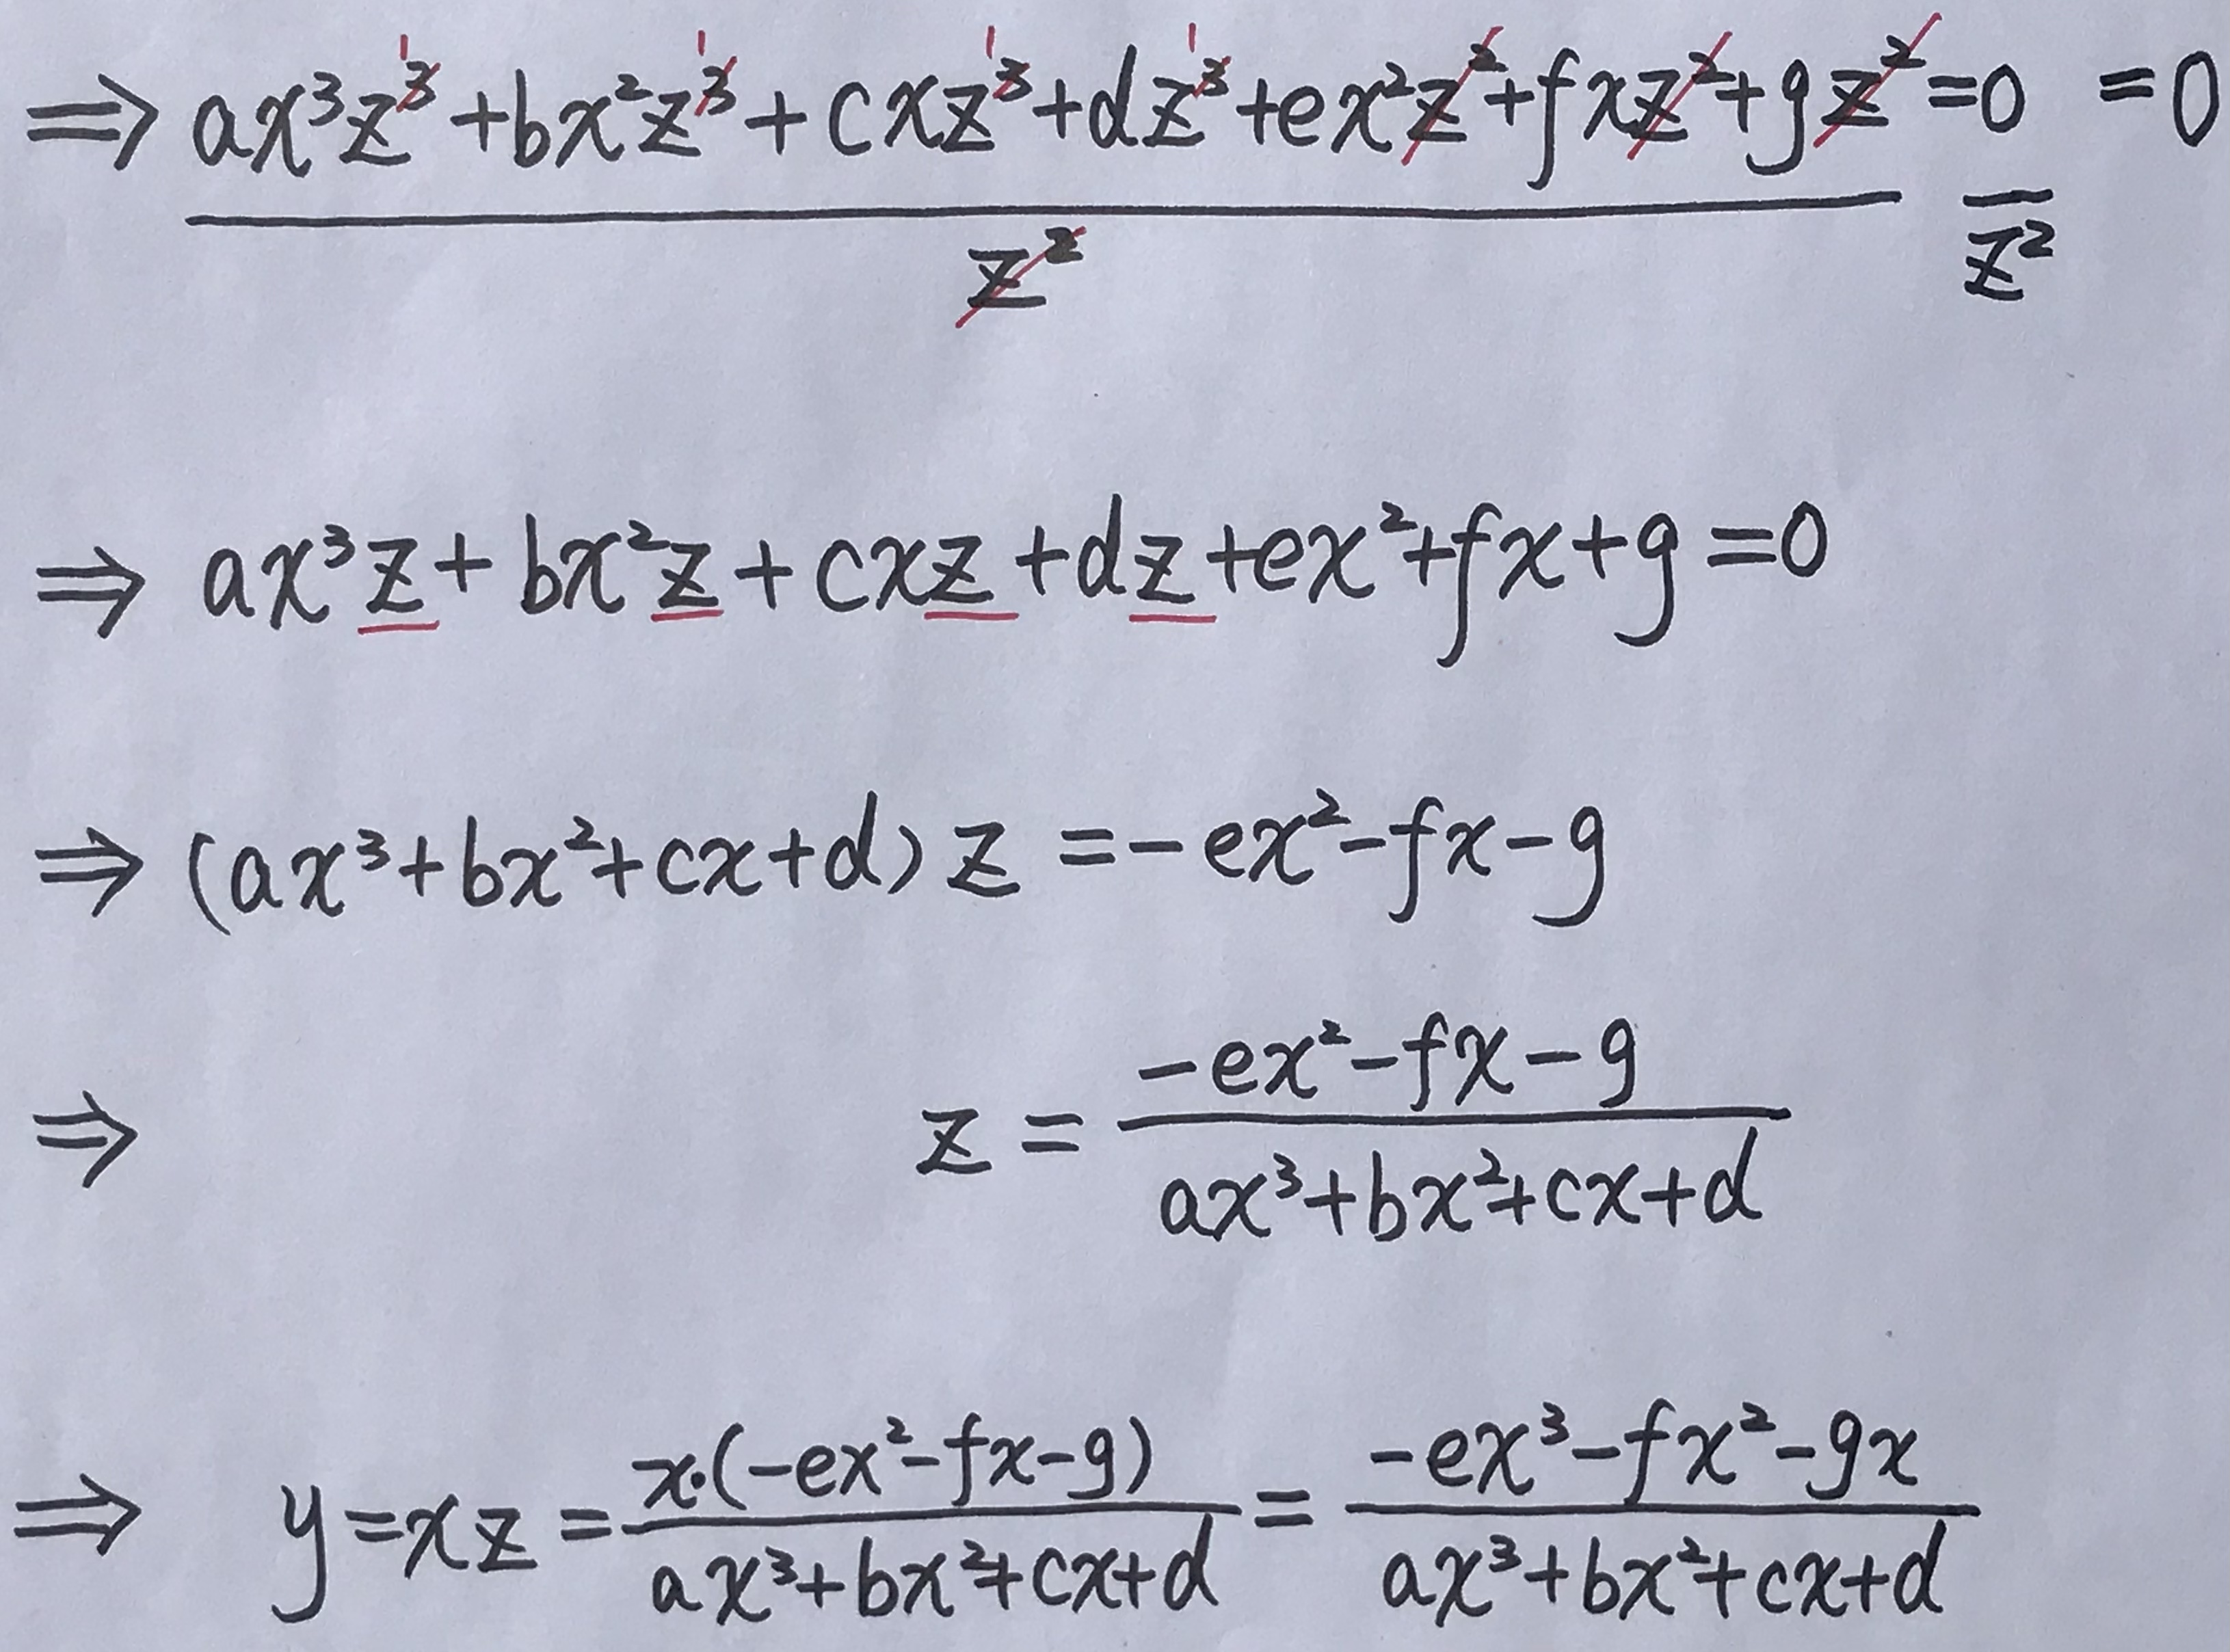 ⇒ (ax³z³ + bx²z³ + cxz³ + dz³ + ex²z² + fxz² + gz²) / z² = 0 / z² = 0
1 1 1 1
⇒ ax³z + bx²z + cxz + dz + ex² + fx + g = 0
⇒ (ax³ + bx² + cx + d) z = -ex² - fx - g
⇒ z = (-ex² - fx - g) / (ax³ + bx² + cx + d)
⇒ y = xz = x·(-ex² - fx - g) / (ax³ + bx² + cx + d) = (-ex³ - fx² - gx) / (ax³ + bx² + cx + d)